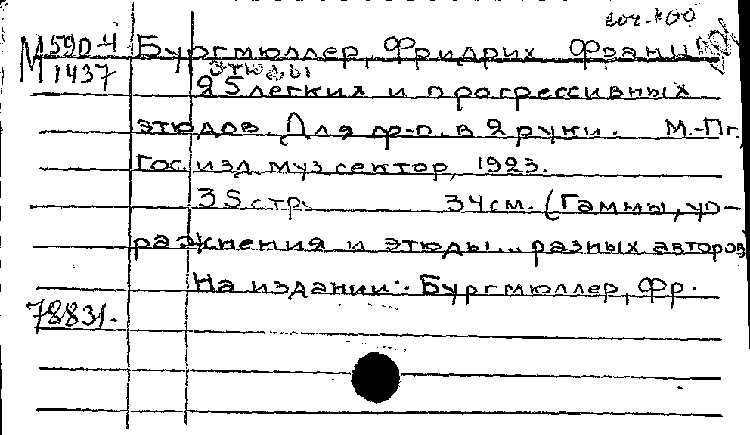 М 590-4 Бургмюллер, Фридрих Франц
1437 Этюды
25 легких и прогрессивных
этюдов. Для ф-п. в 2 руки. М.-Пг,
Гос. изд. муз сектор, 1923.
35 стр. 34 см. (Гаммы, уп-
ражнения и этюды... разных авторов)
На издании: Бургмюллер, Фр.
78831.